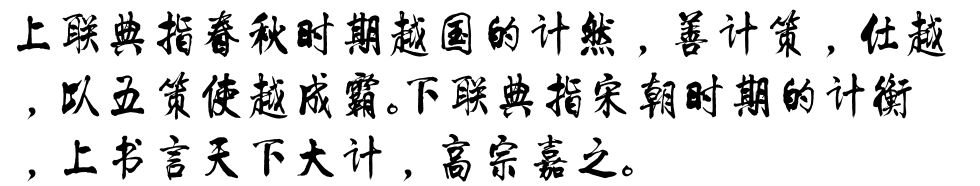 上联典指春秋时期越国的计然，善计策，仕越
，以五策使越成霸。下联典指宋朝时期的计衡
，上书言天下大计，高宗嘉之。